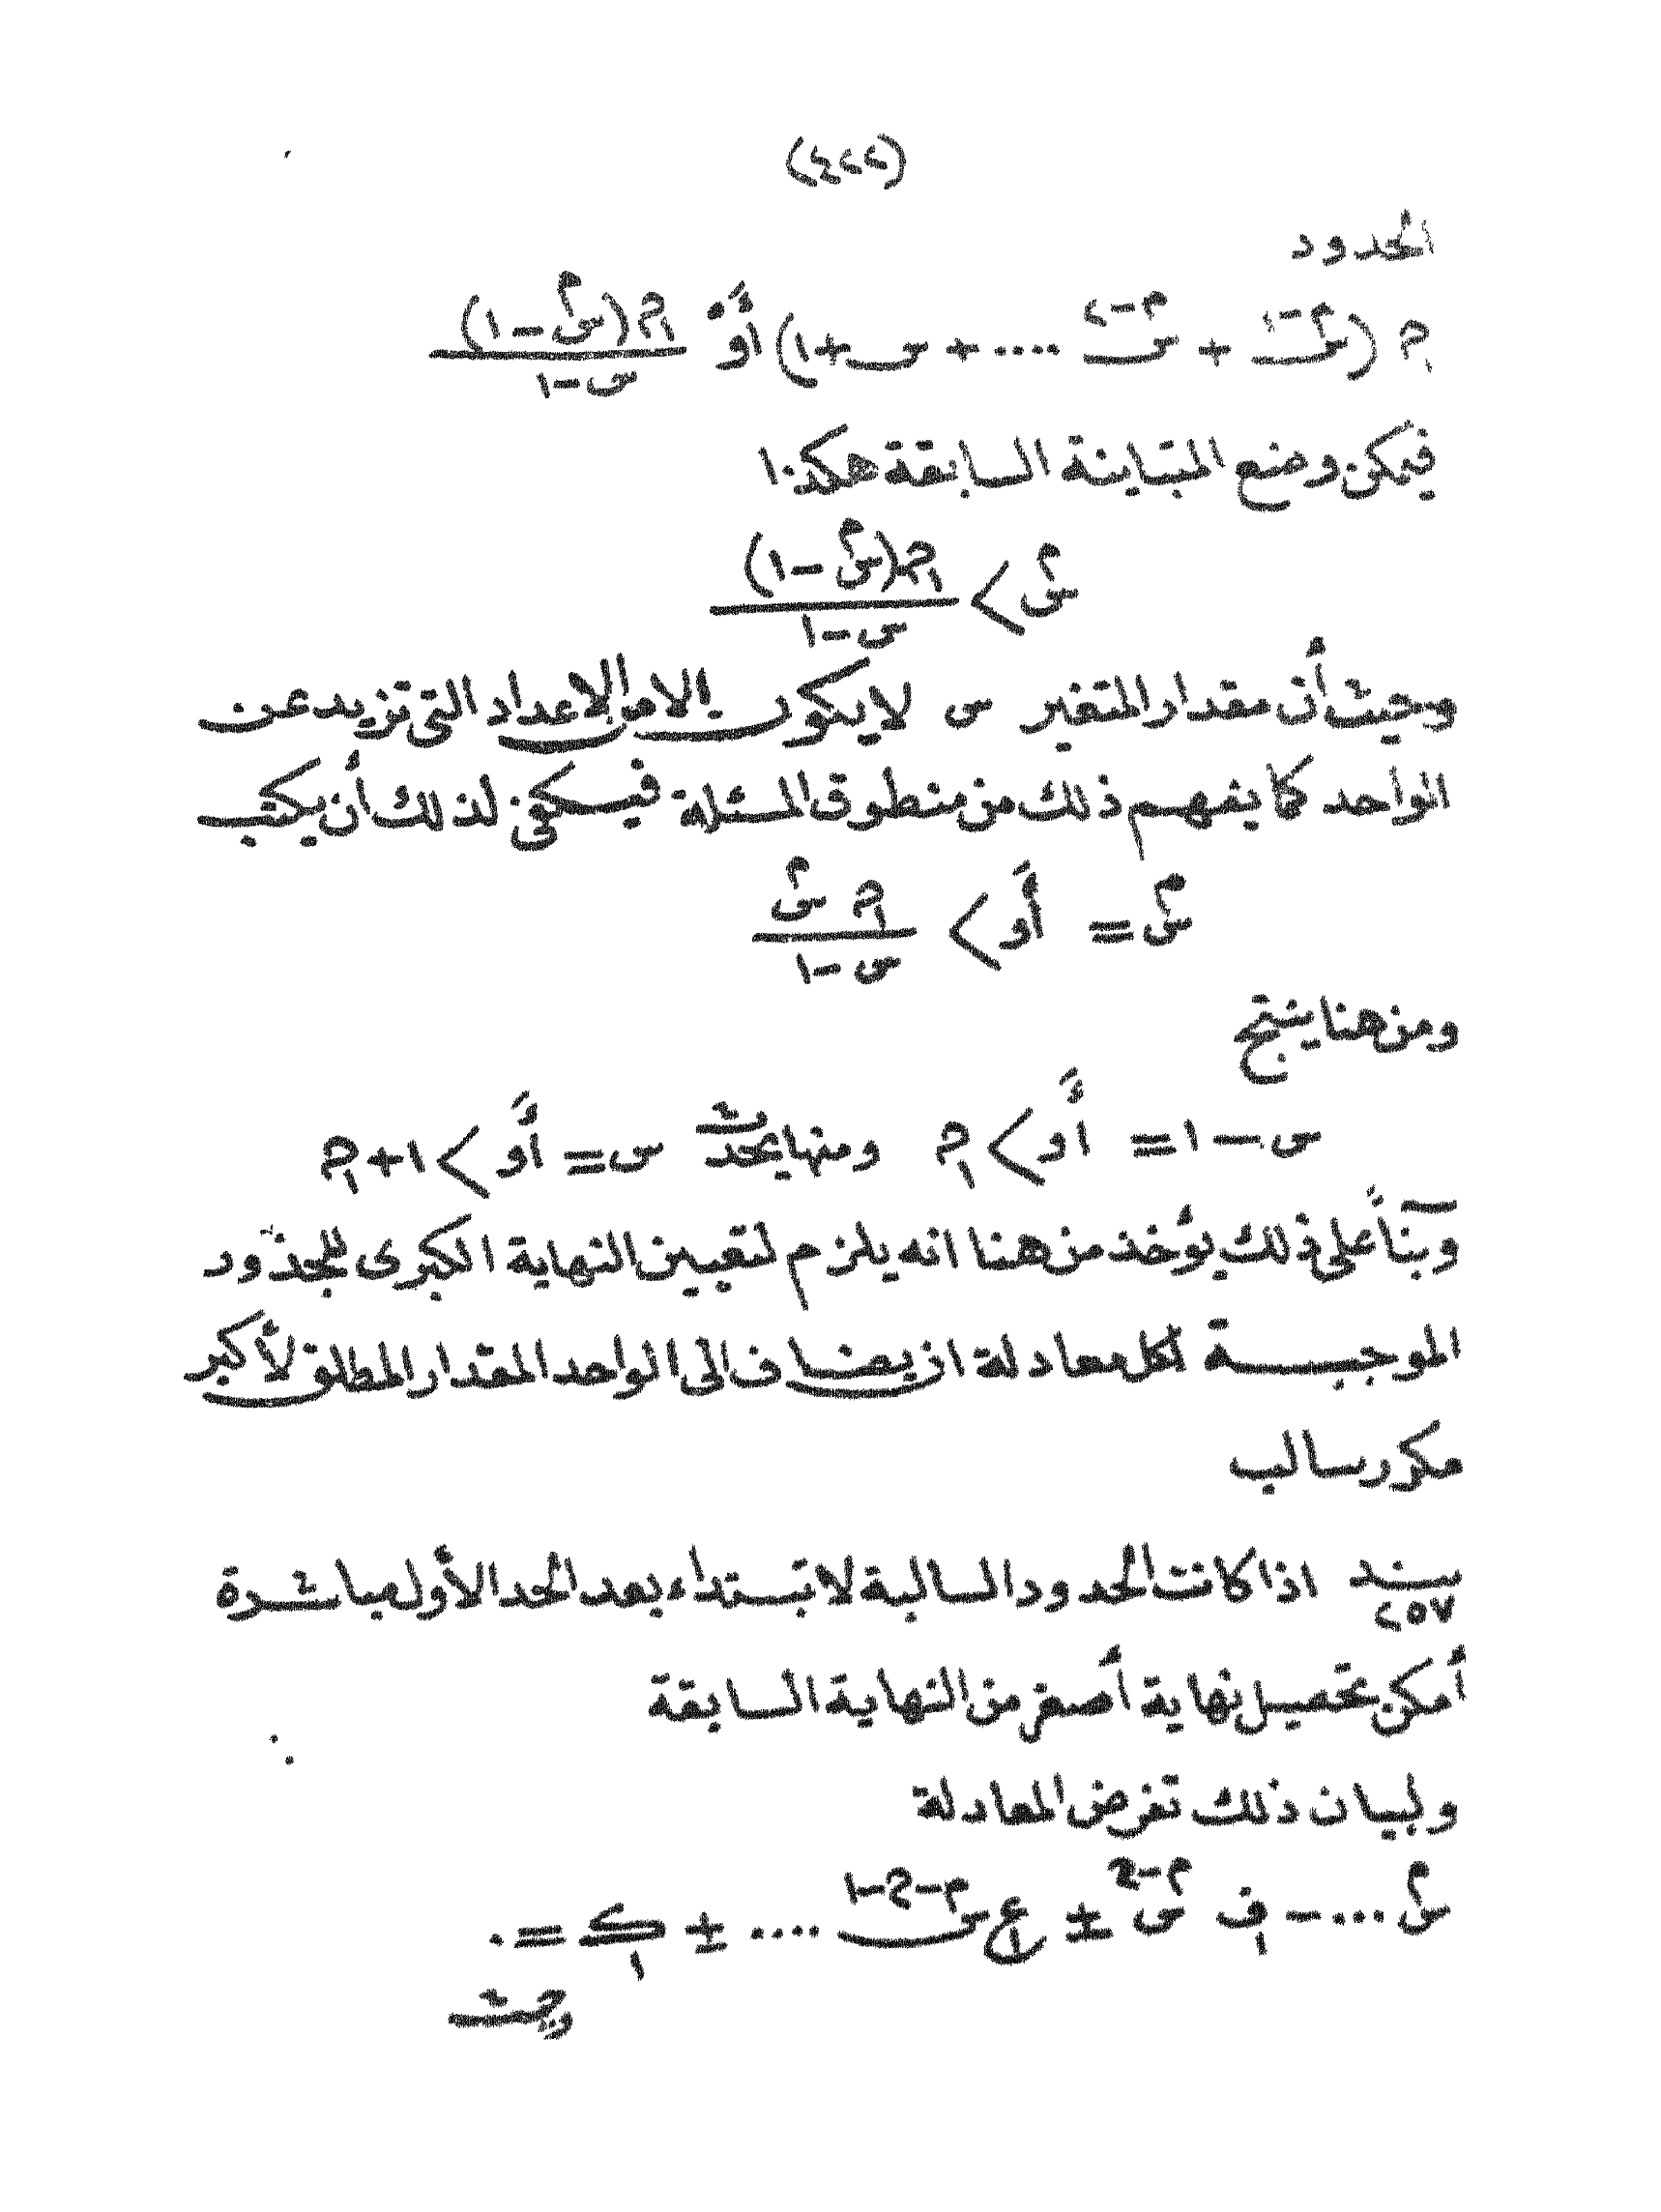 (٤٢٢)
الحدود
ح₁ (س^(م-١) + س^(م-٢) .... + س + ١) أو ح₁(س^م - ١) / (س - ١)
فيمكن وضع المتباينة السابقة هكذا
س^م > ح₁(س^م - ١) / (س - ١)
وحيث أن مقدار المتغير س لا يكون الا من الاعداد التى تزيد عن
الواحد كما يفهم ذلك من منطوق المسئلة فيكفى لذلك أن يكتب
س^م = أو > ح₁ س^م / (س - ١)
ومن هنا ينتج
س - ١ = أو > ح₁ ومنها يحدث س = أو > ١ + ح₁
وبناً على ذلك يؤخذ من هنا انه يلزم لتعيين النهاية الكبرى للجذور
الموجبة لكل معادلة ان يضاف الى الواحد المقدار المطلق لأكبر
مكرر سالب
بند ٢٥٧ اذا كانت الحدود السالبة لا تبتداء بعد الحد الأول مباشرة
أمكن تحصيل نهاية أصغر من النهاية السابقة
ولبيان ذلك نفرض المعادلة
س^م .... - ف₁ س^(م-ح) ± ع₁ س^(م-ح-١) .... ± ك₁ = ٠
وحيث